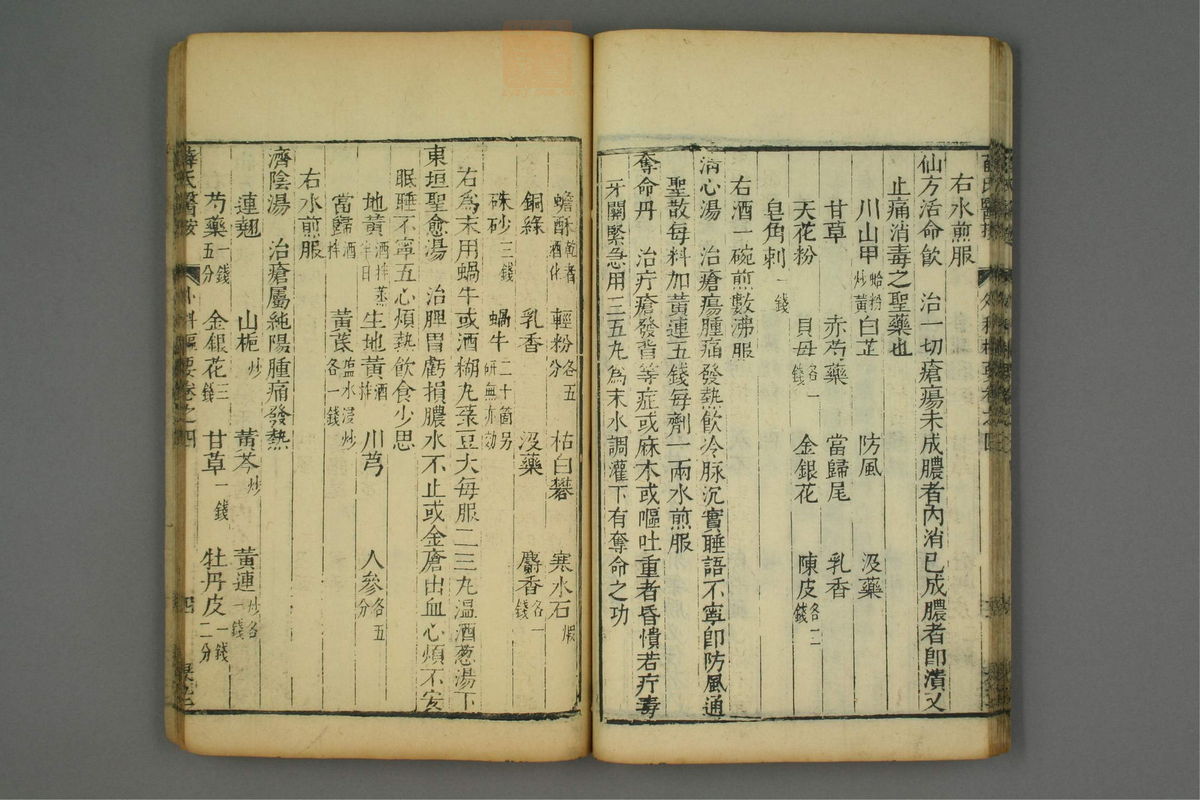 右水煎服
仙方活命飮 治一切瘡瘍未成膿者內消已成膿者卽潰又
止痛消毒之聖藥也
川山甲蛤粉炒黃 白芷 防風 沒藥
甘草 赤芍藥 當歸尾 乳香
天花粉 貝母各一錢 金銀花 陳皮各三錢
皂角刺一錢
右酒一碗煎數沸服
淸心湯 治瘡瘍腫痛發熱飮冷脉沉實睡語不寧卽防風通
聖散每料加黃連五錢每劑一兩水煎服
奪命丹 治疔瘡發背等症或麻木或嘔吐重者昏憒若疔毒
牙關緊急用三五丸爲末水調灌下有奪命之功
蟾酥乾者酒化 輕粉各五分 枯白礬 寒水石煆
銅綠 乳香 沒藥 麝香各一錢
硃砂三錢 蝸牛二十箇另研無亦効
右爲末用蝸牛或酒糊丸菉豆大每服二三丸溫酒葱湯下
東垣聖愈湯 治脾胃虧損膿水不止或金瘡出血心煩不安
眠睡不寧五心煩熱飮食少思
地黃酒拌蒸半日 生地黃酒拌 川芎 人參各五分
當歸酒拌 黃芪塩水浸炒各一錢
右水煎服
濟陰湯 治瘡屬純陽腫痛發熱
連翹 山梔炒 黃芩炒 黃連炒各一錢
芍藥一錢五分 金銀花三錢 甘草一錢 牡丹皮一錢二分
薛氏醫按 外科樞要卷之四 四